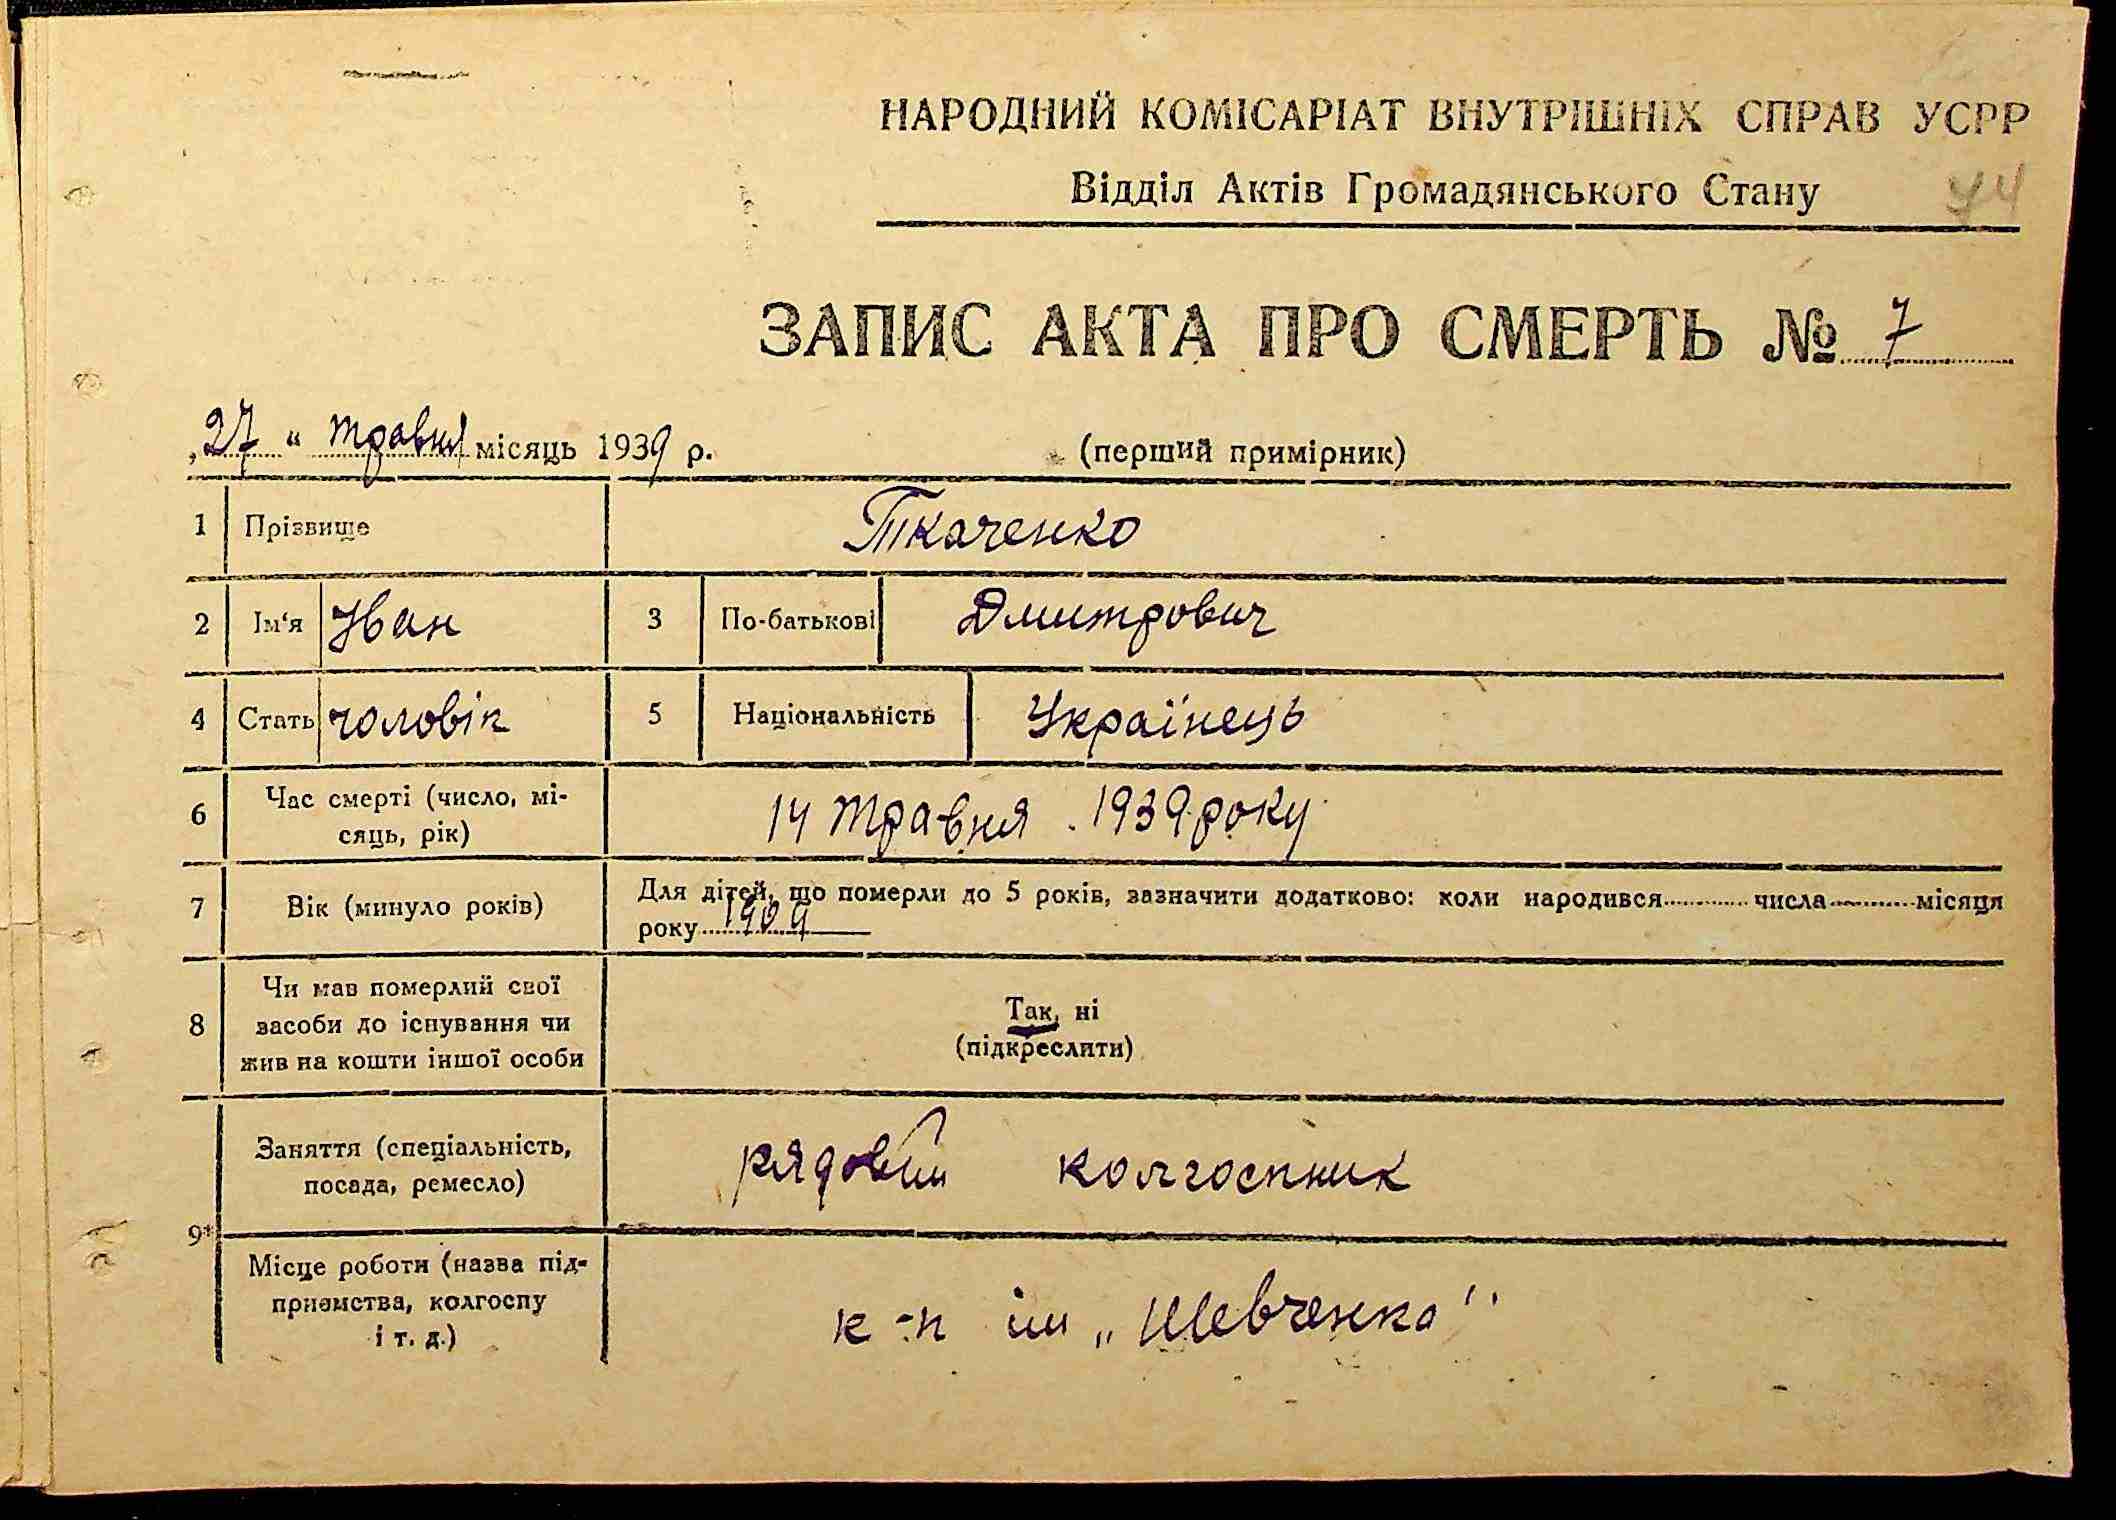 НАРОДНИЙ КОМІСАРІАТ ВНУТРІШНІХ СПРАВ УСРР
Відділ Актів Громадянського Стану 44
ЗАПИС АКТА ПРО СМЕРТЬ № 7
„27“ травня місяць 1939 р. (перший примірник)
1 Прізвище Ткаченко
2 Ім‘я Іван 3 По-батькові Дмитрович
4 Стать чоловік 5 Національність Українець
6 Час смерті (число, мі-
сяць, рік) 14 травня 1939 року
7 Вік (минуло років) Для дітей, що померли до 5 років, зазначити додатково: коли народився числа місяця
року 1909
8 Чи мав померлий свої
засоби до існування чи
жив на кошти іншої особи
Так, ні
(підкреслити)
9* Заняття (спеціальність,
посада, ремесло) рядовий колгоспник
Місце роботи (назва під-
приємства, колгоспу
і т. д.) к-п ім „Шевченка"